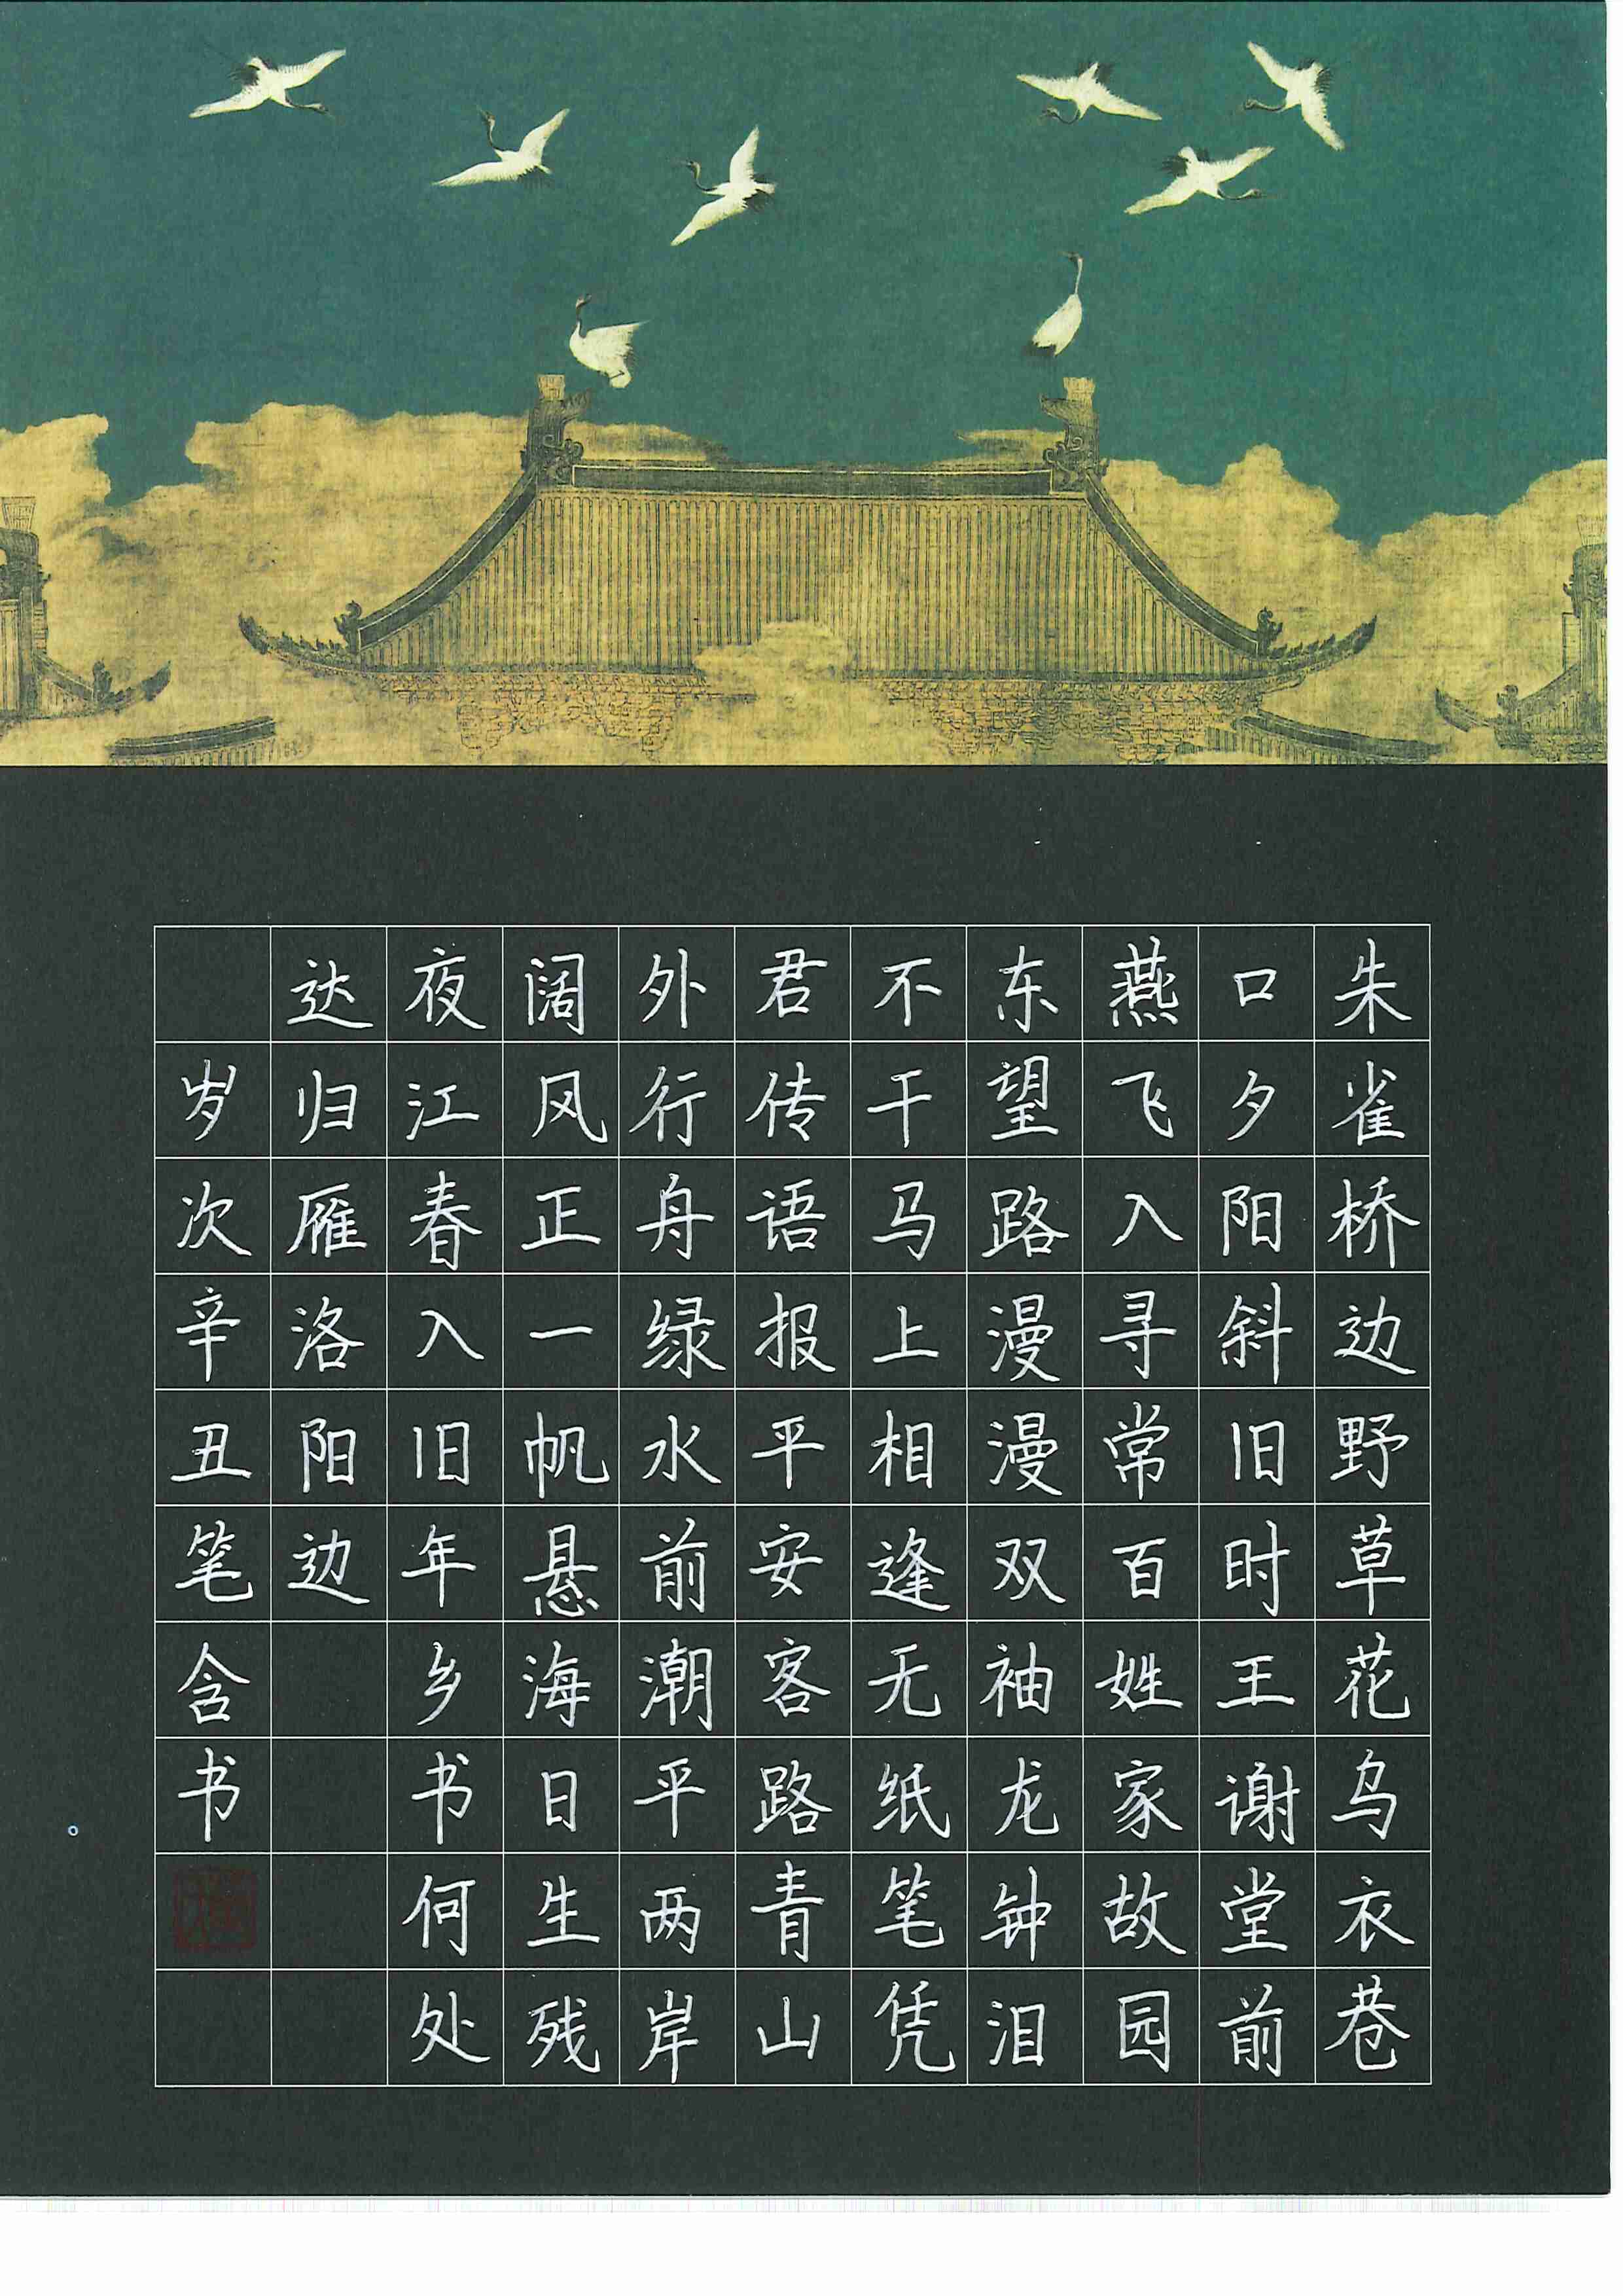 朱雀桥边野草花乌衣巷
口夕阳斜旧时王谢堂前
燕飞入寻常百姓家故园
东望路漫漫双袖龙钟泪
不干马上相逢无纸笔凭
君传语报平安客路青山
外行舟绿水前潮平两岸
阔风正一帆悬海日生残
夜江春入旧年乡书何处
达归雁洛阳边
岁次辛丑笔含书